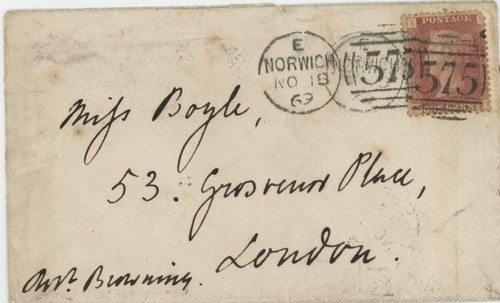 E
NORWICH
NO 18
69
POSTAGE
575
575
Miss Boyle,
53. Grosvenor Place,
London.
Robt. Browning.